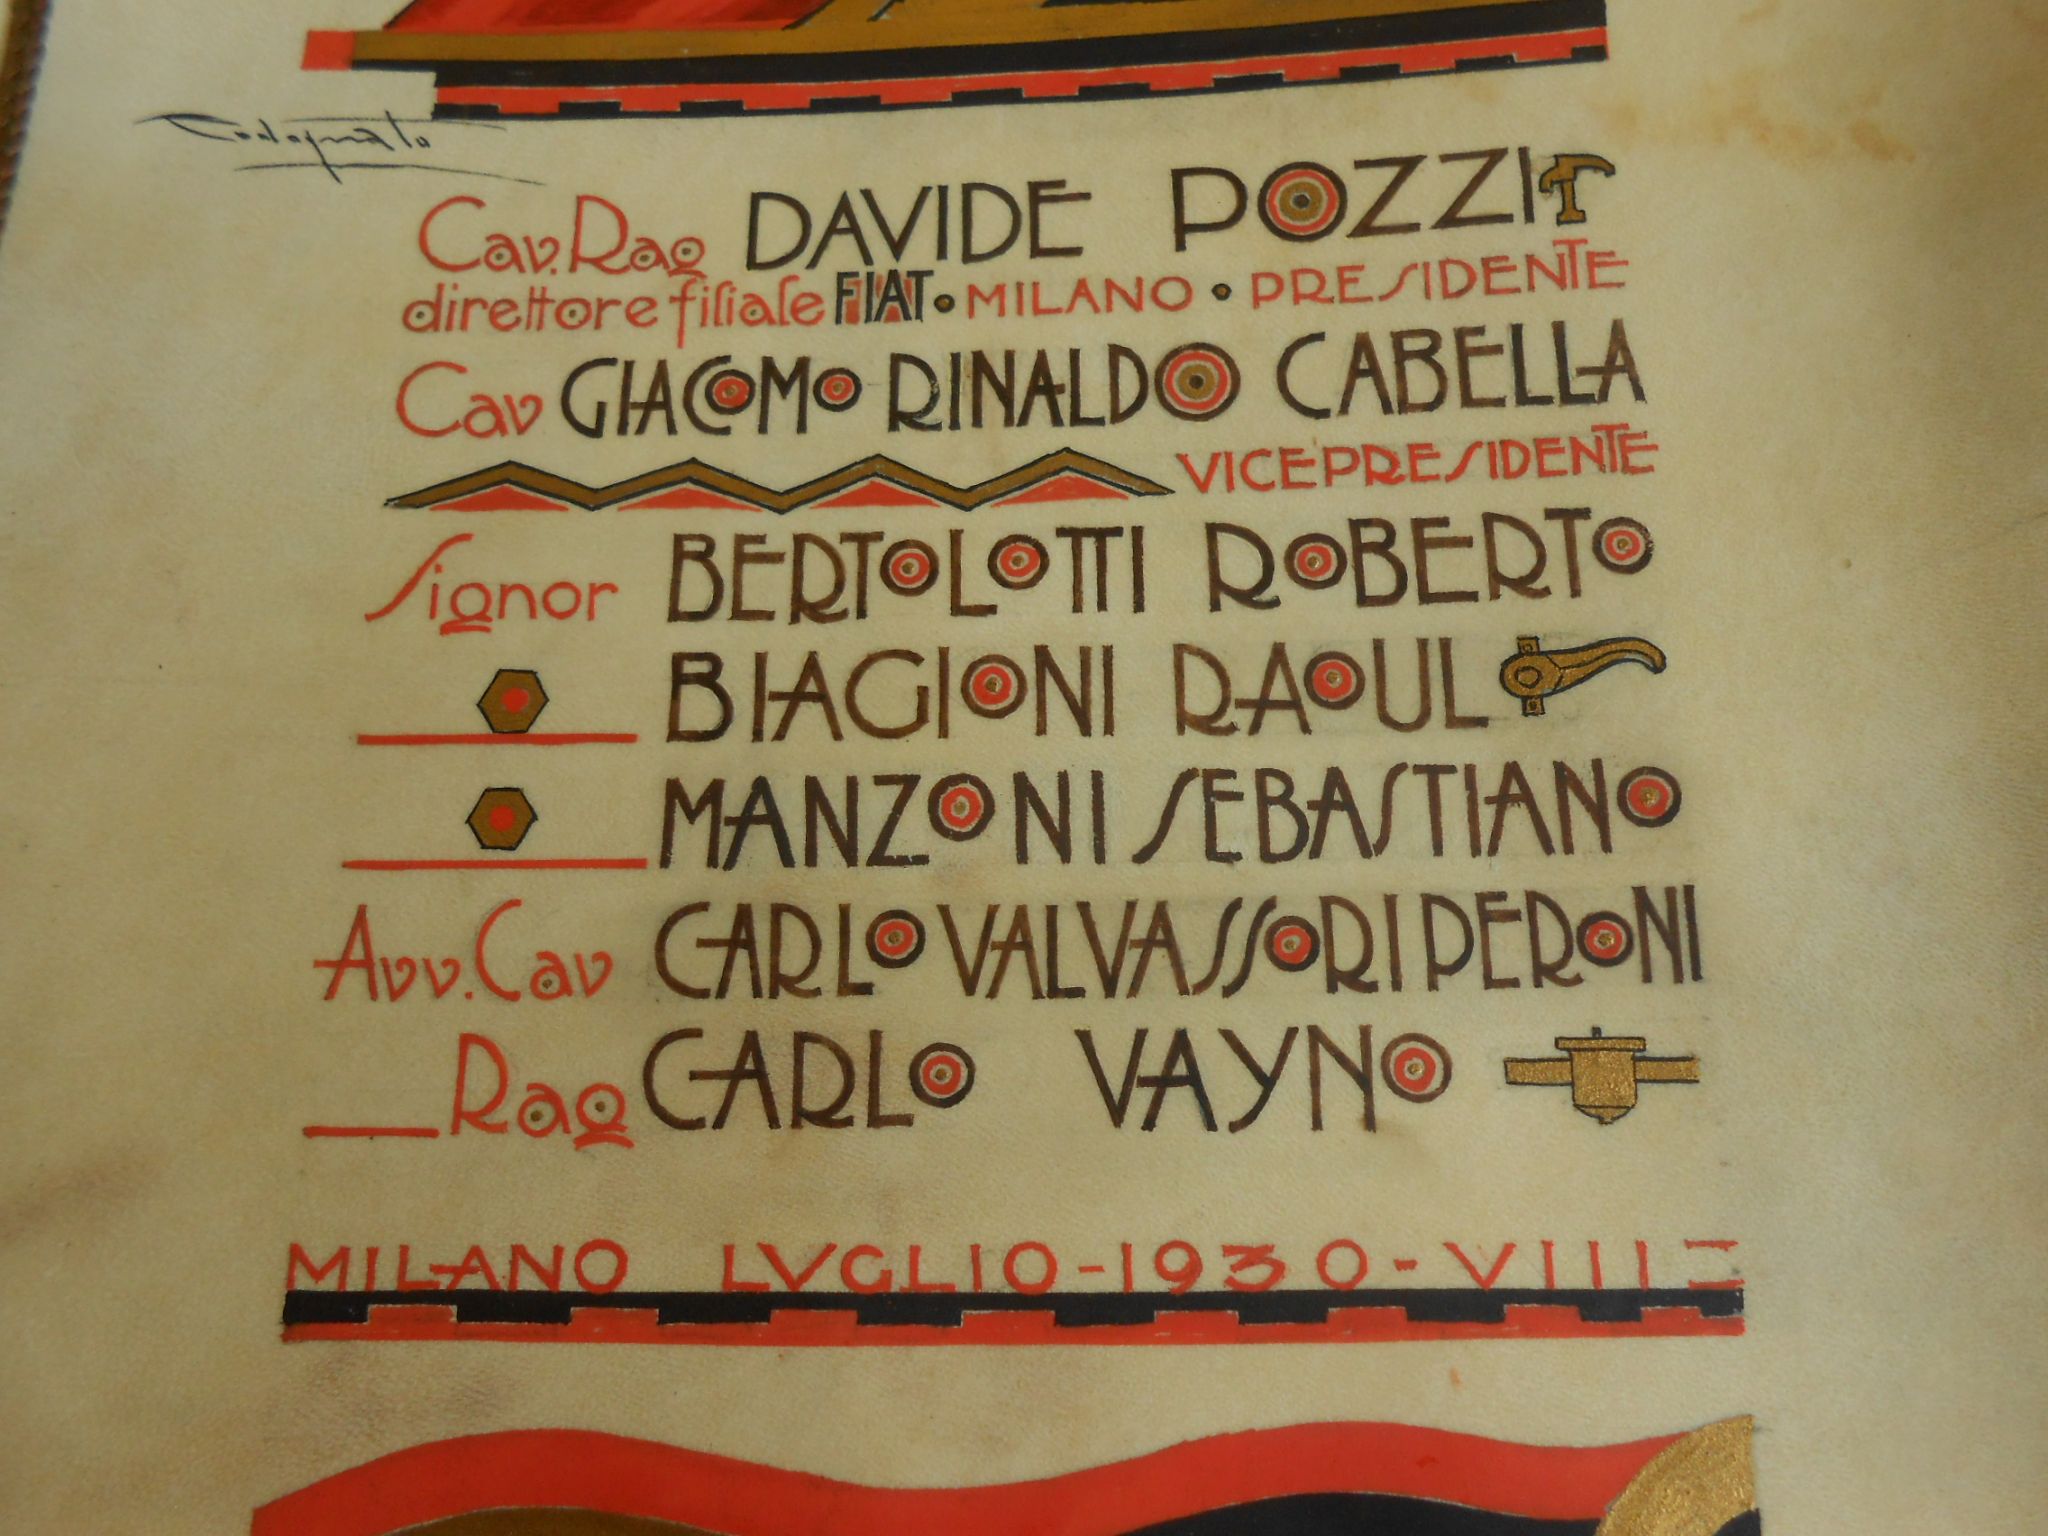 Codognato
Cav. Rag DAVIDE POZZI
direttore filiale FIAT • MILANO • PRESIDENTE
Cav GIACOMO RINALDO CABELLA
VICEPRESIDENTE
Signor BERTOLOTTI ROBERTO
BIAGIONI RAOUL
MANZONI SEBASTIANO
Avv. Cav CARLO VALVASSORI PERONI
Rag CARLO VAYNO
MILANO LVGLIO - 1930 - VIII